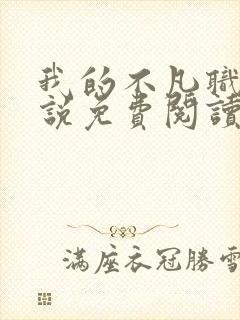 我的不凡職
說免費閱讀
满座衣冠勝雪